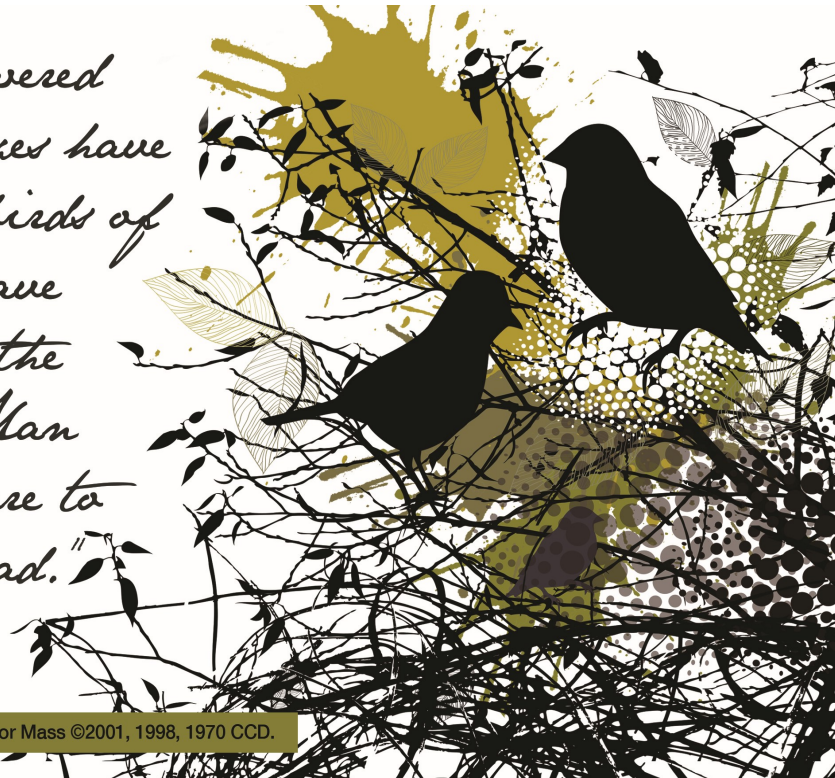 vered
xes have
birds of
ave
the
Man
re to
ad."
or Mass ©2001, 1998, 1970 CCD.